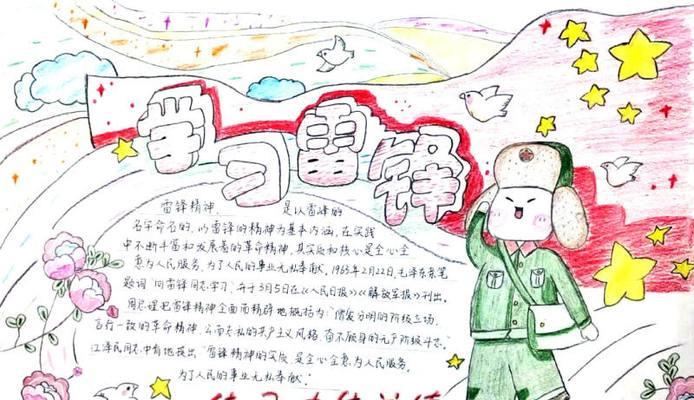 学习雷锋
雷锋精神，是以雷锋的
名字命名的，以雷锋的精神为基本内涵，在实践
中不断丰富和发展着的革命精神，其实质和核心是全心全
意为人民服务，为了人民的事业无私奉献。1963年2月22日，毛泽东亲笔
题词"向雷锋同志学习，并于3月5日在《人民日报》《解放军报》刊出。
周总理把雷锋精神全面而精辟地概括为"憎爱分明的阶级立场、
言行一致的革命精神、公而忘私的共产主义风格、奋不顾身的无产阶级斗志。"
江泽民同志中肯地提出"雷锋精神的实质是全心全意为人民服务，
为了人民的事业无私奉献。"